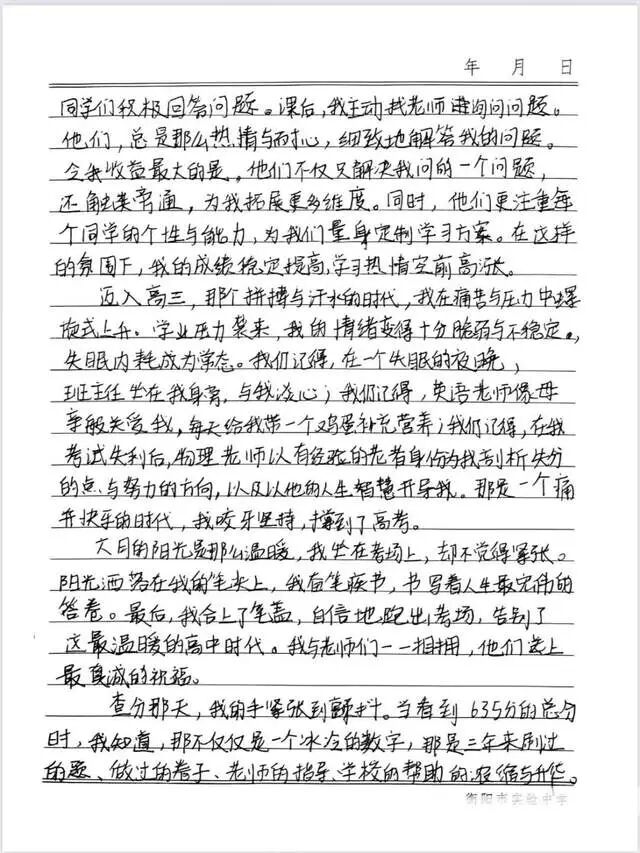 年 月 日
同学们积极回答问题。课后，我主动找老师进询问问题。
他们，总是那么热情与耐心，细致地解答我的问题。
令我收益最大的是，他们不仅仅解决我问的一个问题，
还触类旁通，为我拓展更多维度。同时，他们更注重每
个同学的个性与能力，为我们量身定制学习方案。在这样
的氛围下，我的成绩稳定提高，学习热情空前高涨。
迈入高三，那个拼搏与汗水的时代，我在痛苦与压力中螺
旋式上升。学业压力袭来，我的情绪变得十分脆弱与不稳定。，
失眠内耗成为常态。我们记得，在一个失眠的夜晚，
班主任坐在我身旁，与我谈心；我们记得，英语老师像母
亲般关爱我，每天给我带一个鸡蛋补充营养；我们记得，在我
考试失利后，物理老师以有经验的老者身份为我剖析失分
的点与努力的方向，以及以他的人生智慧开导我。那是一个痛
并快乐的时代，我咬牙坚持，撑到了高考。
六月的阳光是那么温暖，我坐在考场上，却不觉得紧张。
阳光洒落在我的笔尖上，我奋笔疾书，书写着人生最宏伟的
答卷。最后，我合上了笔盖，自信地跑出考场，告别了
这最温暖的高中时代。我与老师们一一相拥，他们送上
最真诚的祝福。
查分那天，我的手紧张到颤抖。当看到635分的总分
时，我知道，那不仅仅是一个冰冷的数字，那是三年来刷过
的题、做过的卷子、老师的指导、学校的帮助的浓缩与升华。
衡阳市实验中学